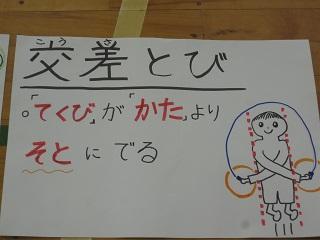 こうさ
交差とび
。「てくび」が「かた」より
そとにでる